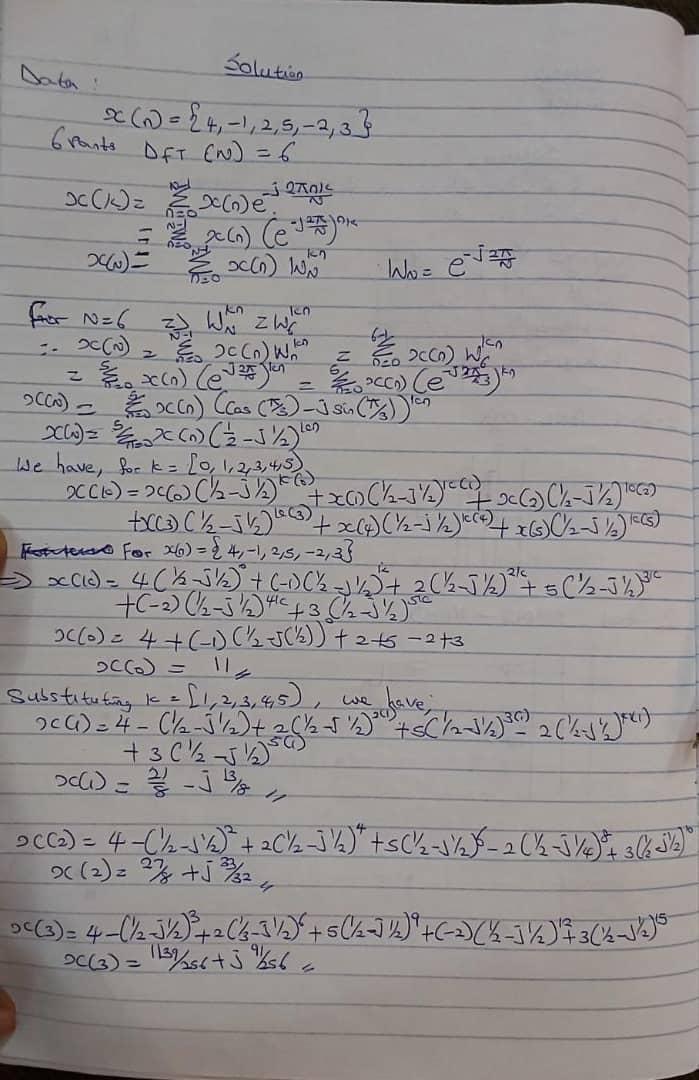 Solution
Data:
x(n) = {4, -1, 2, 5, -2, 3}
6 Points DFT (N) = 6
x(k) = Σ_{n=0}^{N-1} x(n) e^{-j 2πnk/N}
= Σ_{n=0}^{N-1} x(n) (e^{-j 2π/N})^{nk}
x(N) = Σ_{n=0}^{N-1} x(n) W_N^{kn}    W_N = e^{-j 2π/N}
For N=6 => W_N^{kn} = W_6^{kn}
∴ x(N) = Σ_{n=0}^{N-1} x(n) W_n^{kn} = Σ_{n=0}^{6-1} x(n) W_6^{kn}
= Σ_{n=0}^{5} x(n) (e^{-j 2π/6})^{kn} = Σ_{n=0}^{5} x(n) (e^{-j π/3})^{kn}
x(N) = Σ_{n=0}^{5} x(n) (Cos(π/3) - j sin(π/3))^{kn}
x(N) = Σ_{n=0}^{5} x(n) (1/2 - j 1/2)^{kn}
We have, for k = [0, 1, 2, 3, 4, 5)
x(k) = x(0) (1/2 - j 1/2)^{k(0)} + x(1) (1/2 - j 1/2)^{k(1)} + x(2) (1/2 - j 1/2)^{k(2)}
+ x(3) (1/2 - j 1/2)^{k(3)} + x(4) (1/2 - j 1/2)^{k(4)} + x(5) (1/2 - j 1/2)^{k(5)}
For x(n) = {4, -1, 2, 5, -2, 3}
=> x(k) = 4 (1/2 - j 1/2)^0 + (-1) (1/2 - j 1/2)^k + 2 (1/2 - j 1/2)^{2k} + 5 (1/2 - j 1/2)^{3k}
+ (-2) (1/2 - j 1/2)^{4k} + 3 (1/2 - j 1/2)^{5k}
x(0) = 4 + (-1) (1/2 - j(1/2)) + 2 + 5 - 2 + 3
x(0) = 11
Substituting k = [1, 2, 3, 4, 5), we have;
x(1) = 4 - (1/2 - j 1/2) + 2 (1/2 - j 1/2)^{2(1)} + 5 (1/2 - j 1/2)^{3(1)} - 2 (1/2 - j 1/2)^{4(1)}
+ 3 (1/2 - j 1/2)^{5(1)}
x(1) = 21/8 - j 13/8
x(2) = 4 - (1/2 - j 1/2)^2 + 2 (1/2 - j 1/2)^4 + 5 (1/2 - j 1/2)^6 - 2 (1/2 - j 1/4)^8 + 3 (1/2 - j 1/2)^10
x(2) = 27/8 + j 33/32
x(3) = 4 - (1/2 - j 1/2)^3 + 2 (1/3 - j 1/2)^6 + 5 (1/2 - j 1/2)^9 + (-2) (1/2 - j 1/2)^12 + 3 (1/2 - j 1/2)^15
x(3) = 1139/256 + j 91/256